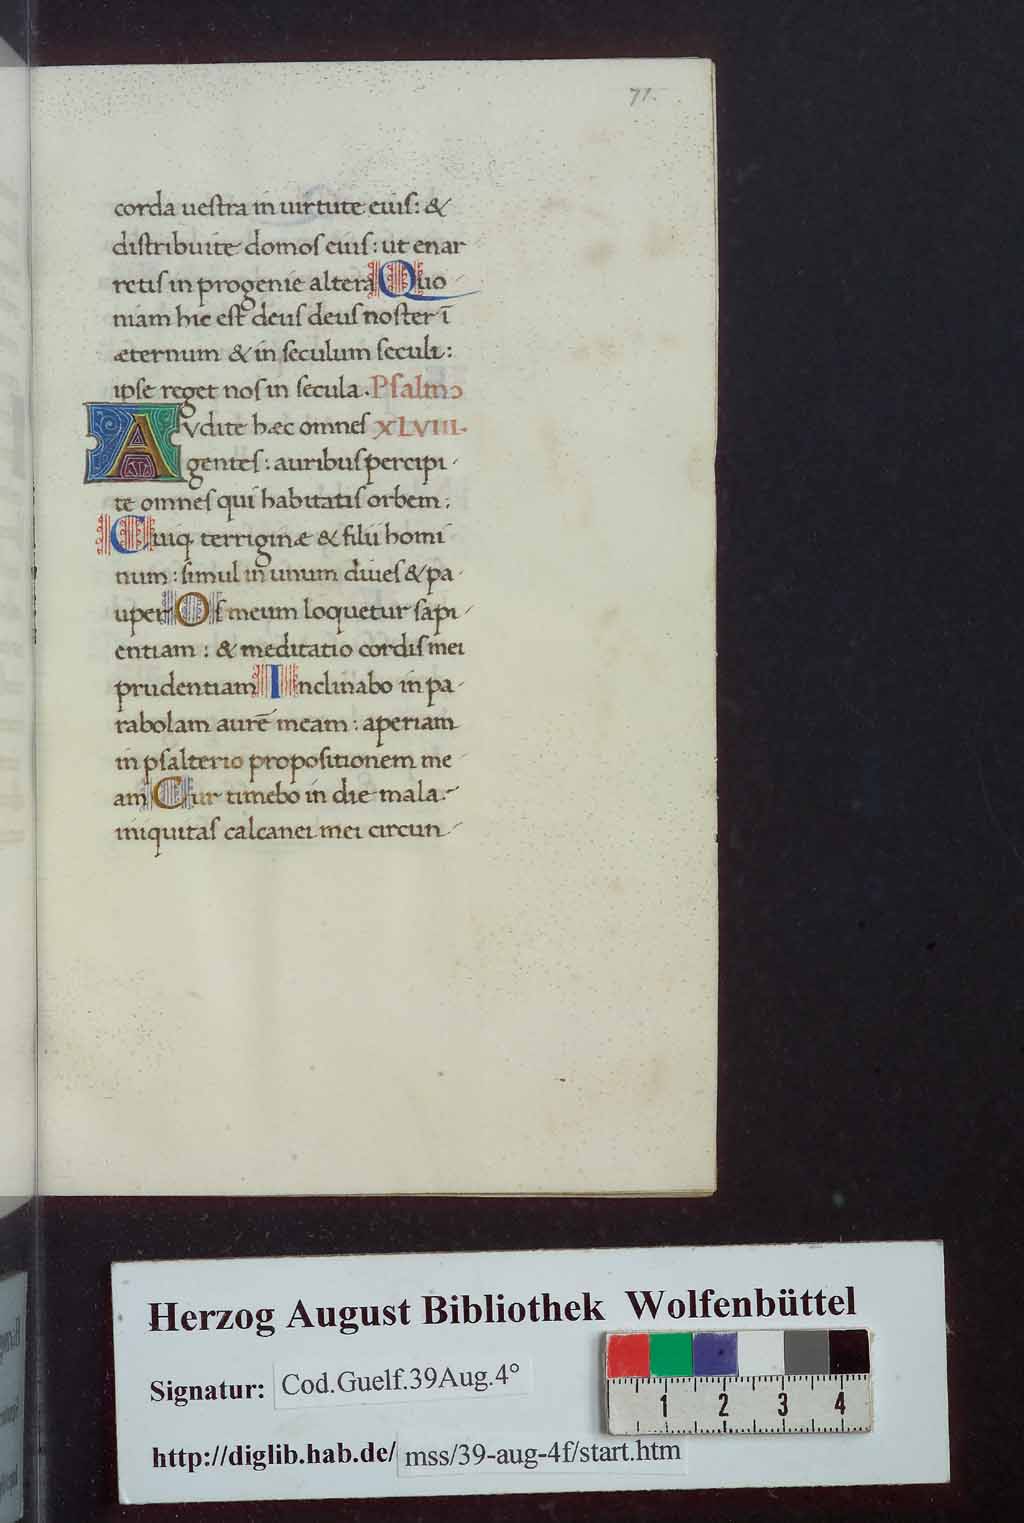 71.
corda uestra in uirtute eius: &
distribuite domos eius: ut enar
retis in progenie altera Quo
niam hic est deus deus noster ī
æternum & in seculum seculi:
ipse reget nos in secula. Psalmo
Avdite hæc omnes XLVIII.
gentes: auribus percipi
te omnes qui habitatis orbem:
Quiq terriginæ & filii homi
num: simul in unum diues & pa
uper Os meum loquetur sapi
entiam: & meditatio cordis mei
prudentiam Inclinabo in pa
rabolam aurē meam: aperiam
in psalterio propositionem me
am Cur timebo in die mala:
iniquitas calcanei mei circun
Herzog August Bibliothek Wolfenbüttel
Signatur: Cod.Guelf.39Aug.4°
http://diglib.hab.de/ mss/39-aug-4f/start.htm
1 2 3 4